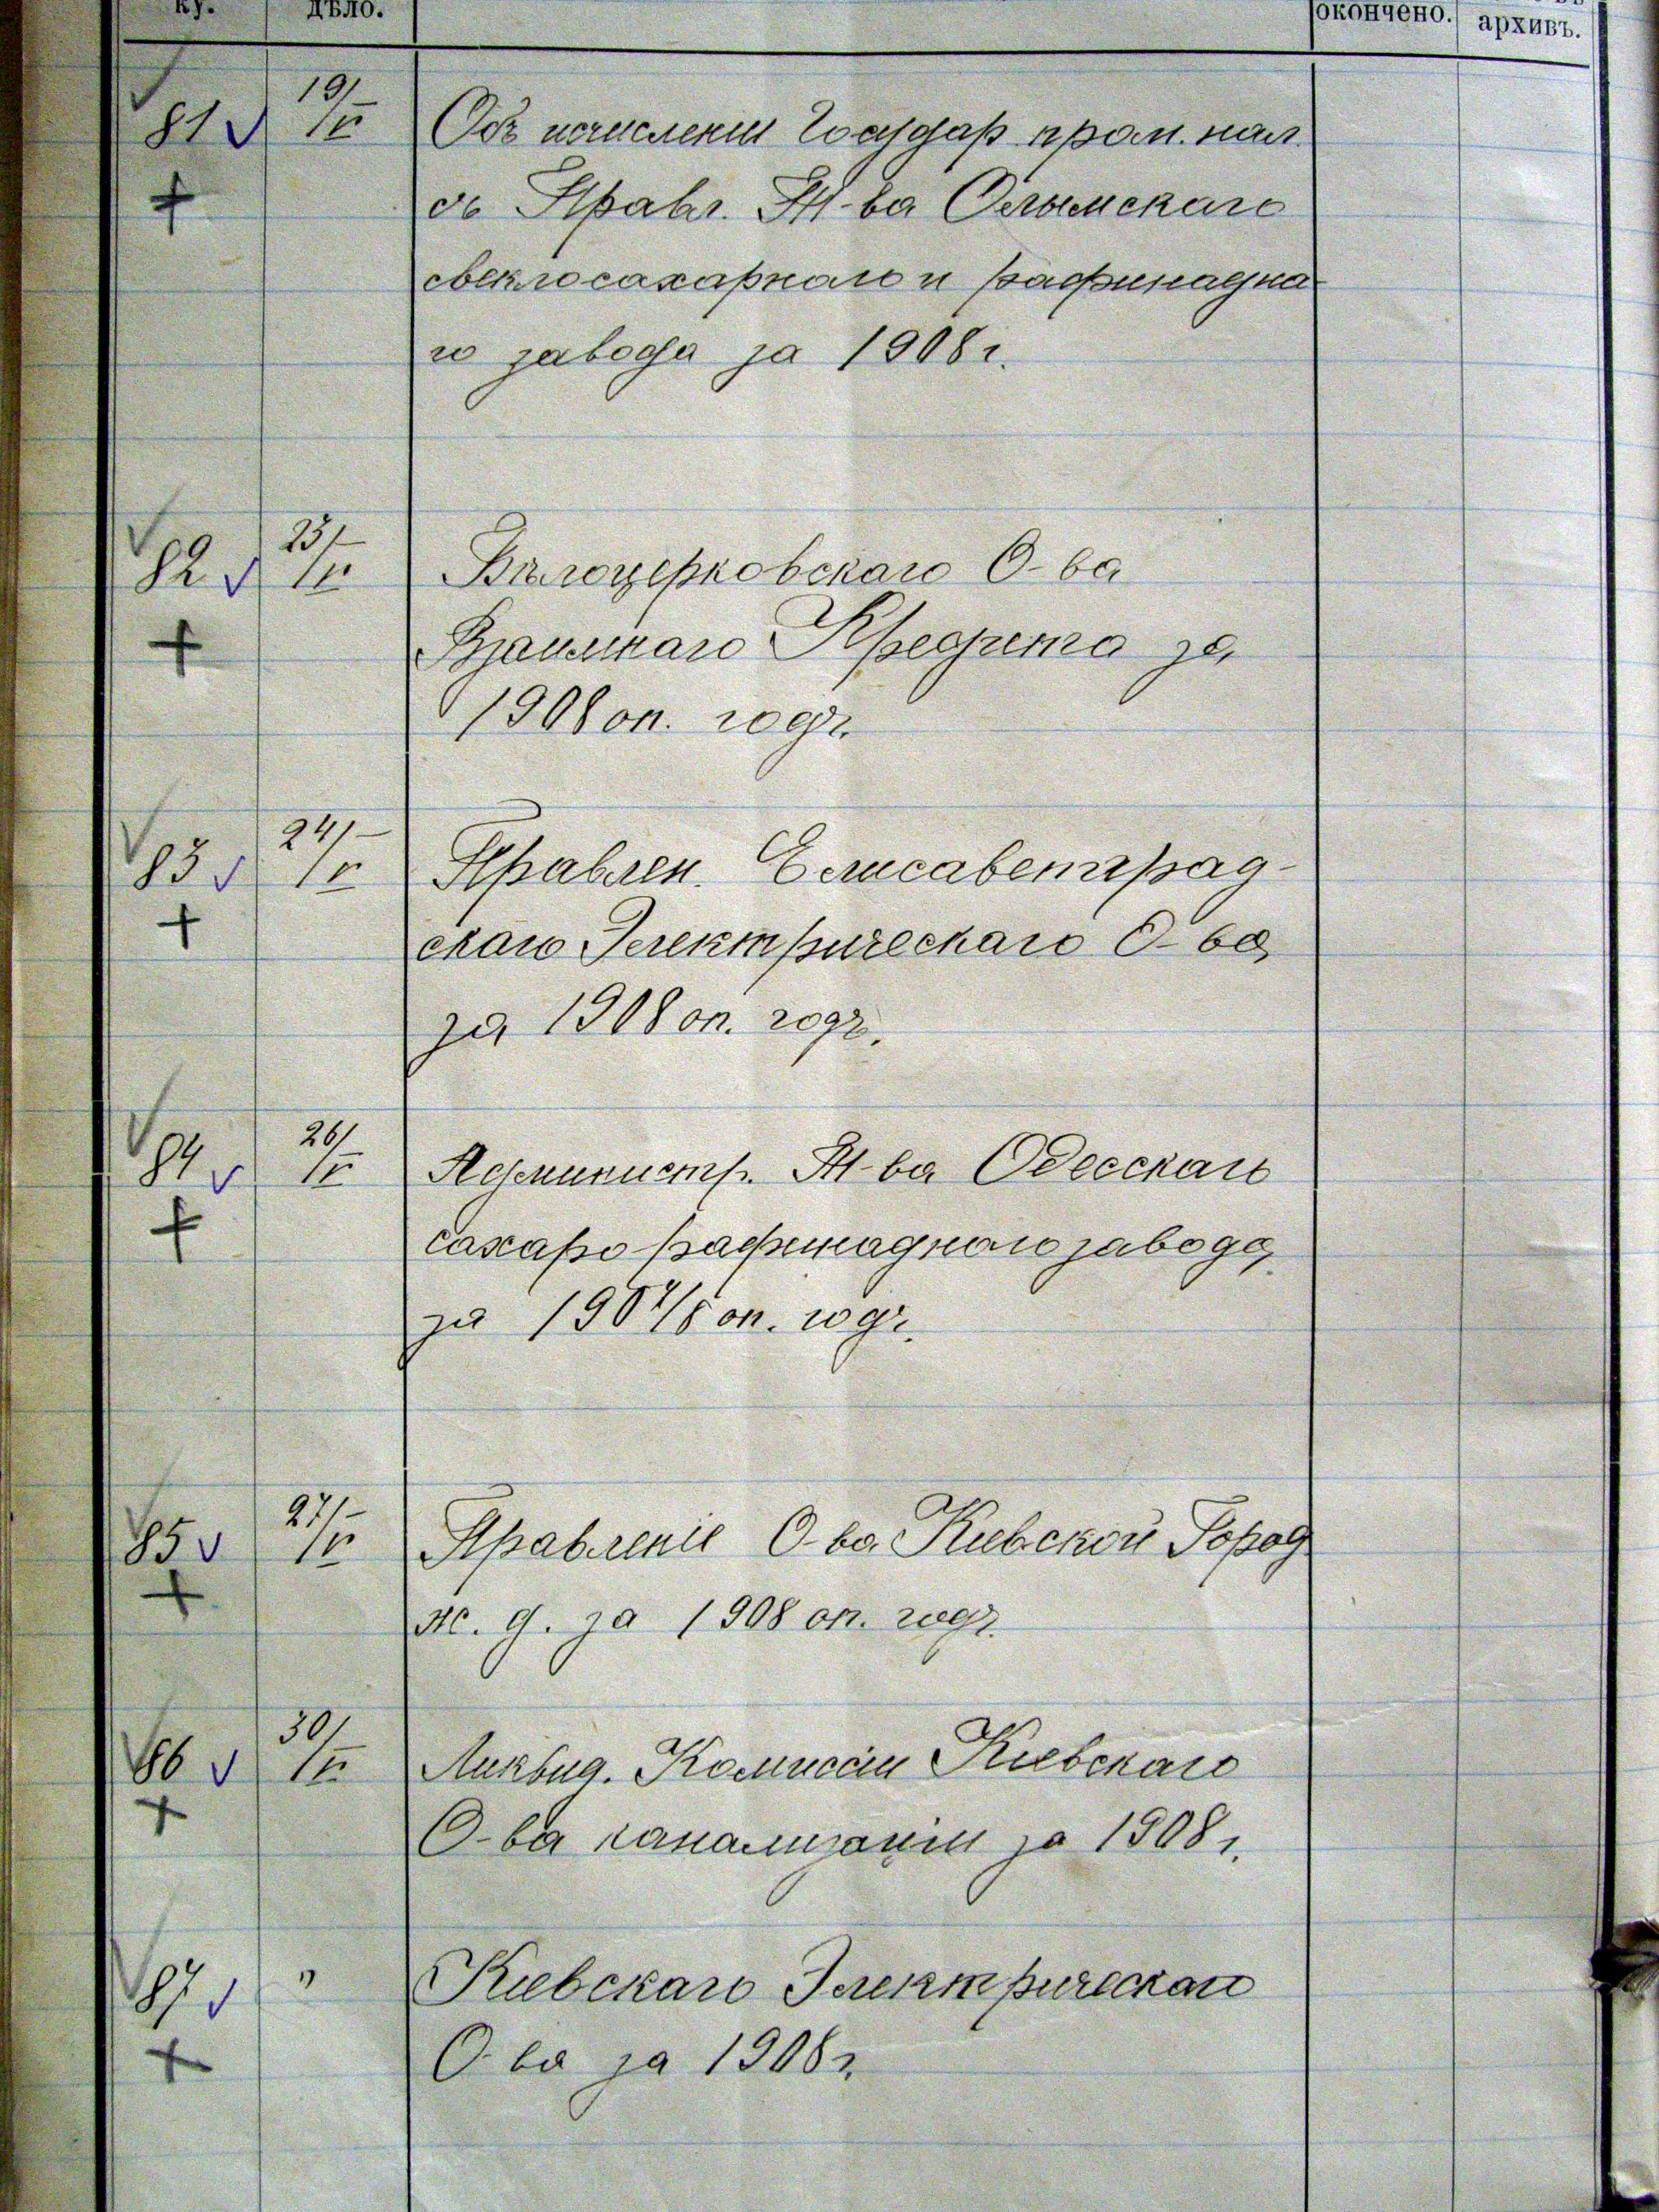 ку. дѣло. окончено. архивъ.
81 19/V Объ исчисленіи Государ пром. нал.
съ Правл. Т-ва Олымскаго
свеклосахарнаго и рафинадна
го завода за 1908 г.
82 23/V Бѣлоцерковскаго О-ва
Взаимнаго Кредита за
1908 оп. годъ.
83 24/V Правлен. Елисаветград-
скаго Электрическаго О-ва
за 1908 оп. годъ.
84 26/V Администр. Т-ва Одесскаго
сахаро-рафинаднаго завода
за 1907/8 оп. годъ.
85 27/V Правленіе О-ва Кіевской Город
ж. д. за 1908 оп. годъ.
86 30/V Ликвид. Комиссіи Кіевскаго
О-ва канализаціи за 1908 г.
87 " Кіевскаго Электрическаго
О-ва за 1908 г.